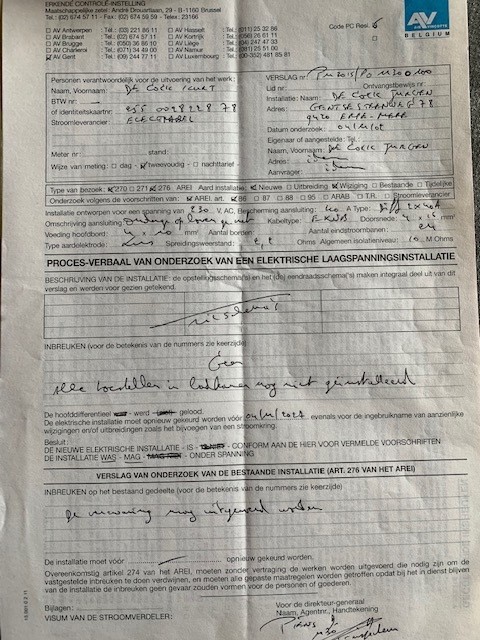 ERKENDE CONTROLE-INSTELLING
Maatschappelijke zetel: André Drouartlaan, 29 - B-1160 Brussel
Tel.: 02/ 674 57 11 - Fax: 02/ 674 59 59 - Telex: 23166
Code PC Resi.
AV
AIB VINÇOTTE
BELGIUM
AV Antwerpen Tel.: (03) 221 86 11
AV Brabant Tel.: (02) 674 57 11
AV Brugge Tel.: (050) 36 86 10
AV Charleroi Tel.: (071) 34 49 00
AV Gent Tel.: (09) 244 77 11
AV Hasselt Tel.: (011) 25 32 88
AV Kortrijk
AV Liège Tel.: (04) 247 47 33
AV Namur Tel.: (081) 25 51 00
AV Luxembourg Tel.: (00-352) 481 85 81
Personen verantwoordelijk voor de uitvoering van het werk:
Naam, Voornaam: DE COCK KURT
BTW nr:
of identiteitskaartnr:
Stroomleverancier: ELECTRABEL
Meter nr: stand:
Wijze van meting: dag - tweevoudig - nachttarief -
VERSLAG nr:
Lid nr: Ontvangstbewijs nr:
Installatie: Naam: DE COCK JURGEN
Adres: GENTSESTEENWEG 78
9420 ERPE-MERE
Datum onderzoek:
Eigenaar of aangestelde: Tel.:
Naam, Voornaam: DE COCK JURGEN
Adres: idem
Aanvrager: idem
Type van bezoek: 270 271 276 AREI Aard installatie: Nieuwe Uitbreiding Wijziging Bestaande Tijdelijke
Onderzoek volgens de voorschriften van: AREI art. 86 87 88 95 ARAB T.R. Stroomleverancier
Installatie ontworpen voor een spanning van 230 V, AC, Bescherming aansluiting: 40 A Type: diff 2x40A
Omschrijving aansluiting Kabeltype: EXVB Doorsnede: mm²
Voeding hoofdbord: mm² Aantal borden: Aantal eindstroombanen:
Type aardelektrode: Lus Spreidingsweerstand: Ohms Algemeen isolatieniveau: 10 M Ohms
PROCES-VERBAAL VAN ONDERZOEK VAN EEN ELEKTRISCHE LAAGSPANNINGSINSTALLATIE
BESCHRIJVING VAN DE INSTALLATIE: de opstellingsschema('s) en het (de) eendraadsschema('s) maken integraal deel uit van dit
verslag en werden voor gezien getekend.
zie schema's
INBREUKEN (voor de betekenis van de nummers zie keerzijde)
Geen
Alle toestellen in badkamer nog niet geïnstalleerd
De hoofddifferentieel - werd gelood.
De elektrische installatie moet opnieuw gekeurd worden vóór evenals voor de ingebruikname van aanzienlijke
wijzigingen en/of uitbreidingen zoals het bijvoegen van een stroomkring.
Besluit:
DE NIEUWE ELEKTRISCHE INSTALLATIE - IS - CONFORM AAN DE HIER VOOR VERMELDE VOORSCHRIFTEN
DE INSTALLATIE WAS - MAG - ONDER SPANNING
VERSLAG VAN ONDERZOEK VAN DE BESTAANDE INSTALLATIE (ART. 276 VAN HET AREI)
INBREUKEN op het bestaand gedeelte (voor de betekenis van de nummers zie keerzijde)
De nog uitgevoerd worden
De installatie moet vóór opnieuw gekeurd worden.
Overeenkomstig artikel 274 van het AREI, moeten zonder vertraging de werken worden uitgevoerd die nodig zijn om de
vastgestelde inbreuken te doen verdwijnen, en moeten alle gepaste maatregelen worden getroffen opdat bij het in dienst blijven
van de installatie de inbreuken geen gevaar zouden vormen voor de personen of goederen.
Bijlagen:
VISUM VAN DE STROOMVERDELER:
Voor de directeur-generaal
Naam, Agentnr., Handtekening